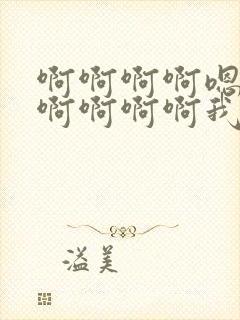 啊啊啊啊嗯
啊啊啊啊我
溢美